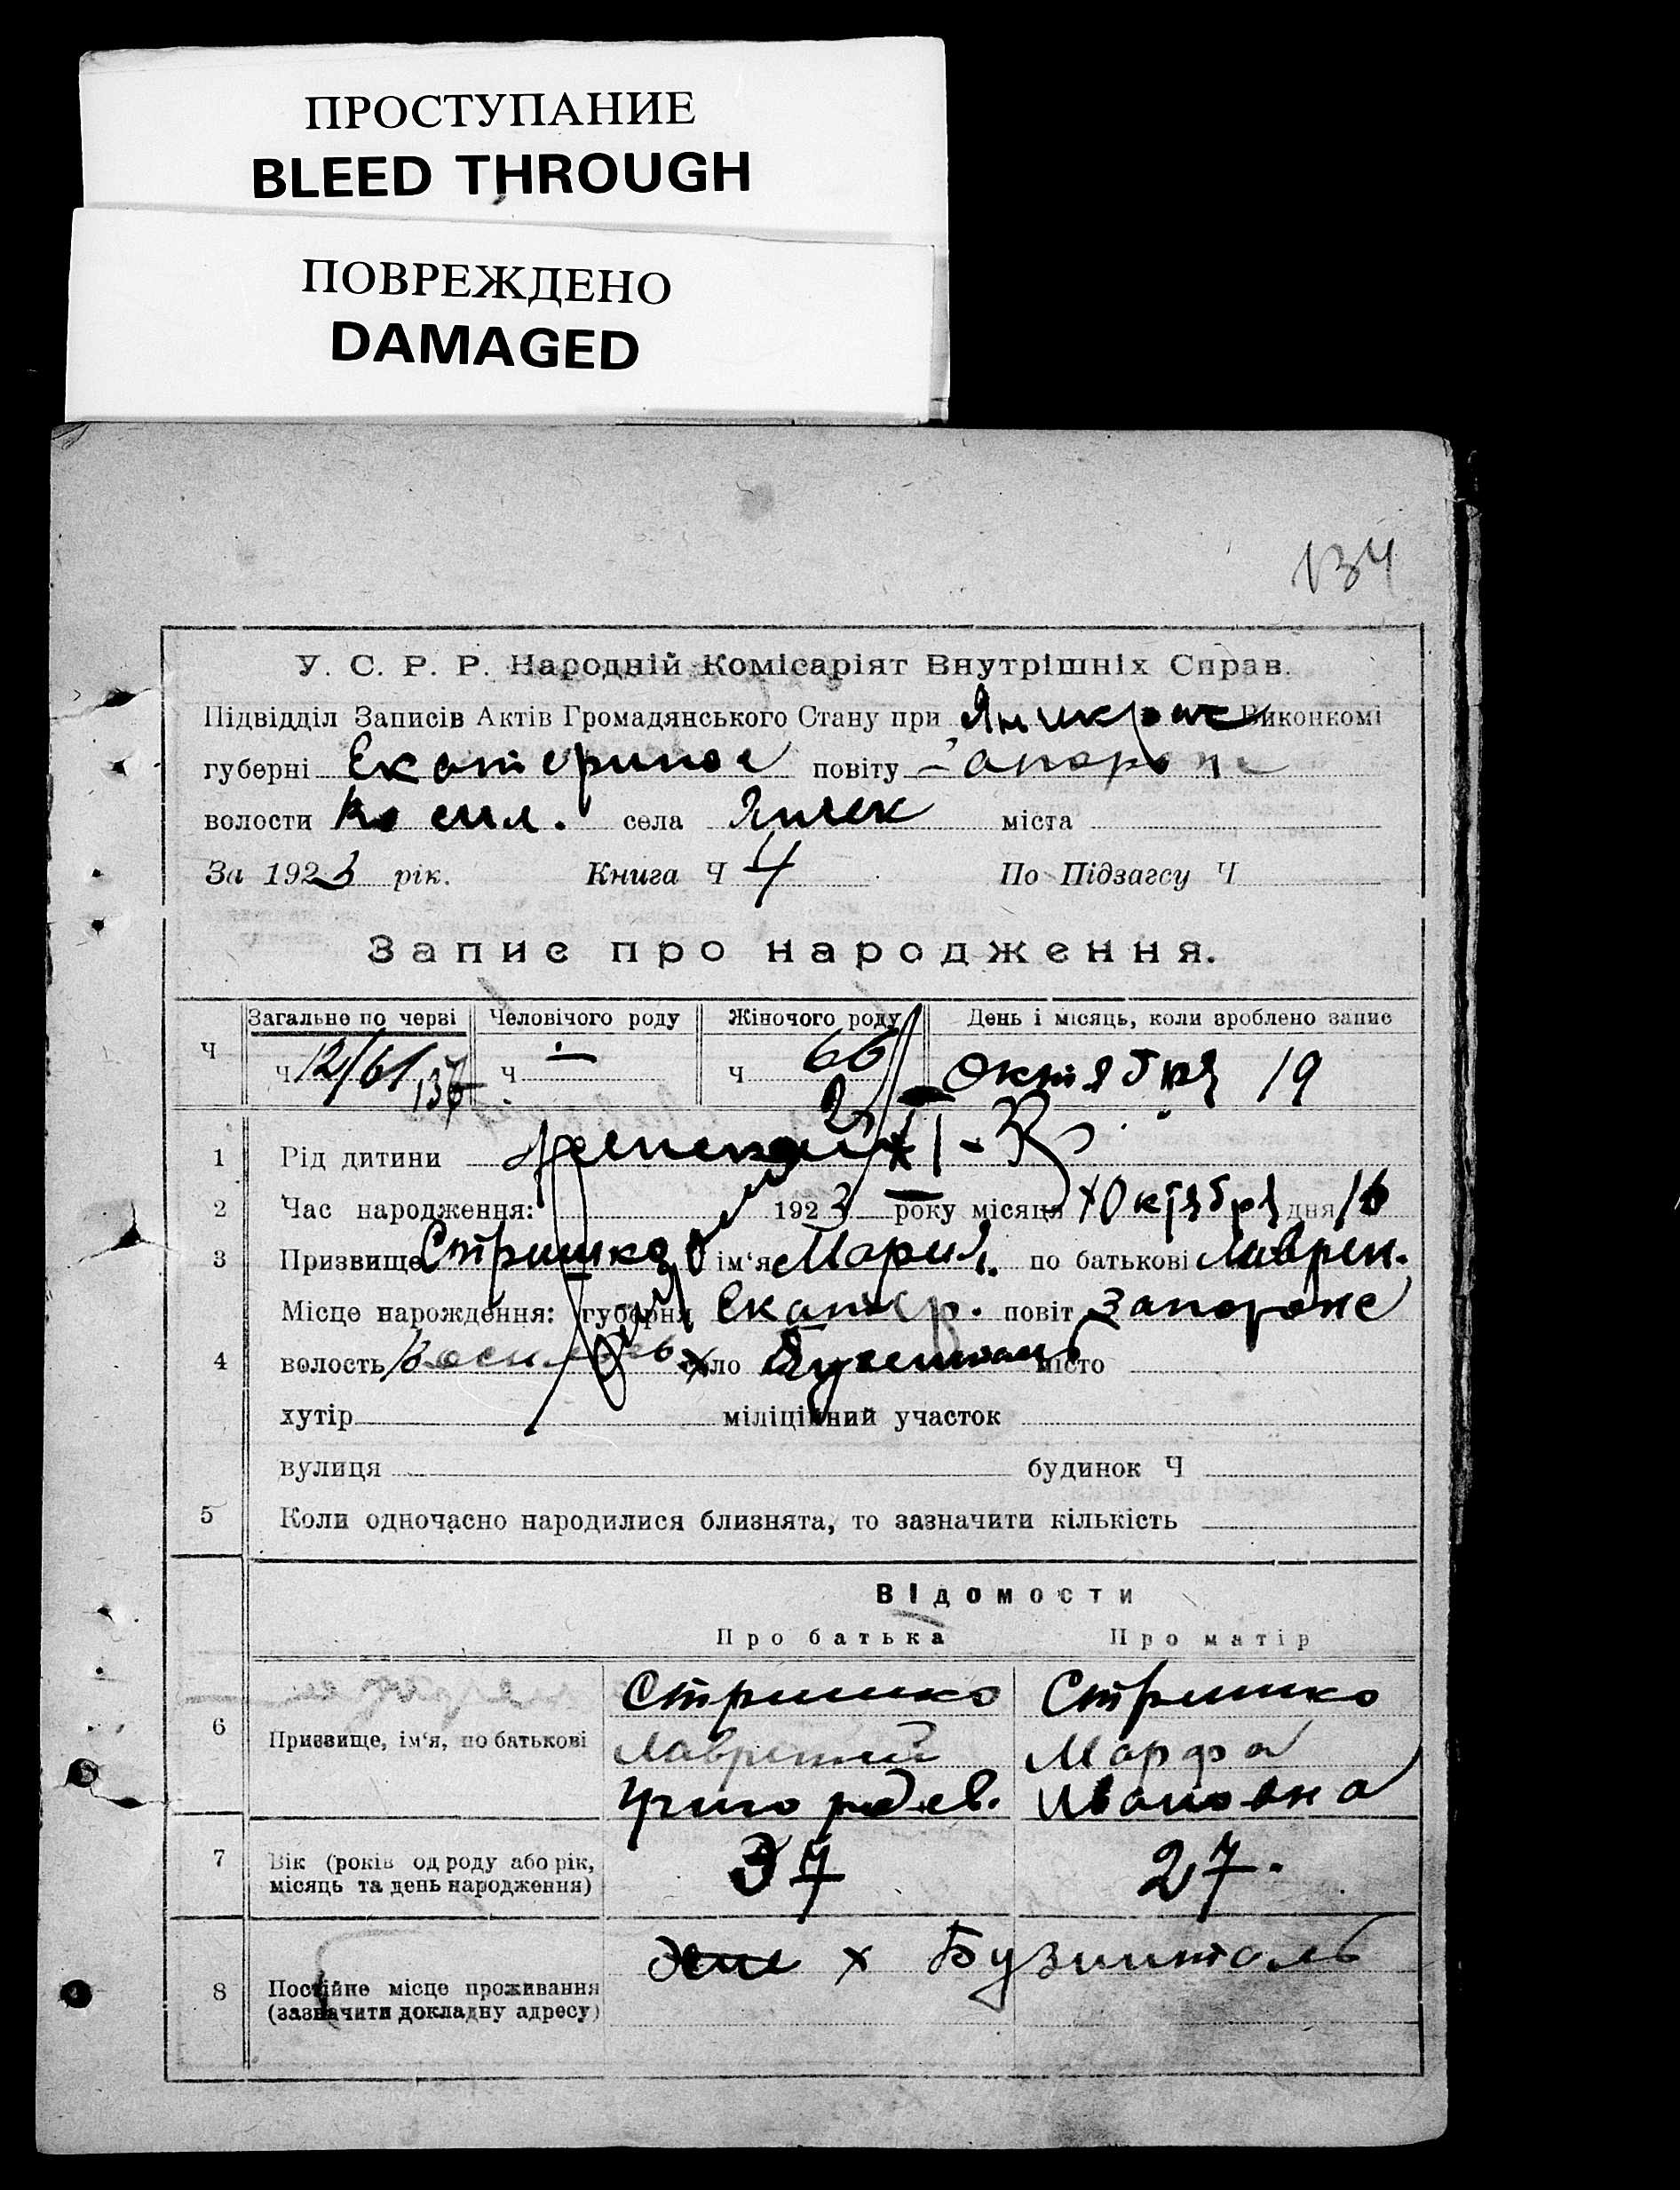 ПРОСТУПАНИЕ
BLEED THROUGH
ПОВРЕЖДЕНО
DAMAGED
134
У. С. Р. Р. Народній Комісаріят Внутрішніх Справ.
Підвідділ Записів Актів Громадянського Стану при Виконкомі
губерні Екатеринос повіту Запорож
волости Васил. села Янчек міста
За 1923 рік. Книга Ч 4 По Підзагсу Ч
Запис про народження.
Загальне по черзі Человічого роду Жіночого роду День і місяць, коли зроблено запис
Ч Ч 12/61 Ч — Ч 66 Октября 19
1 Рід дитини Женский
2 Час народження: 1923 року місяця Октября дня 16
3 Призвище Стришко ім'я Мария по батькові Лаврен.
Місце нарождення: губерня Екатер. повіт Запорож
4 волость село місто
хутір міліційний участок
вулиця будинок Ч
5 Коли одночасно народилися близнята, то зазначити кількість
Відомости
Про батька Про матір
Стришко Стришко
6 Призвище, ім'я, по батькові Лаврентий Марфа
Григорьев. Ивановна
7 Вік (років од роду або рік, місяць та день народження) 37 27.
8 Постійне місце проживання х Бузинталь
(зазначити докладну адресу)